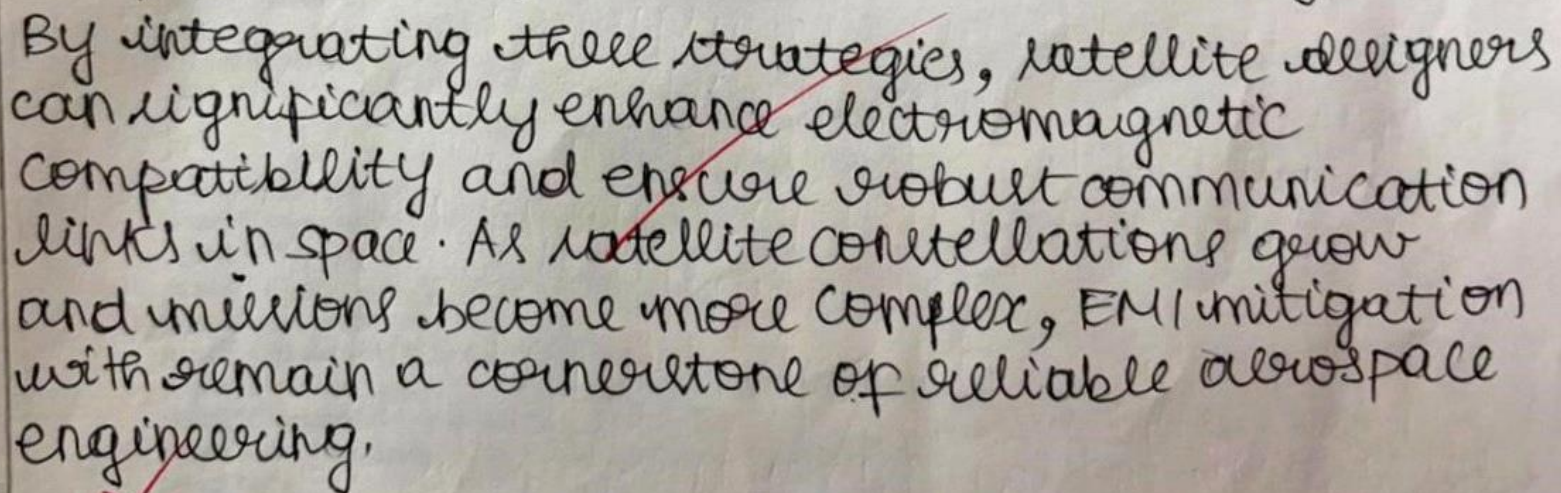 By integrating these strategies, satellite designers
can significantly enhance electromagnetic
compatibility and ensure robust communication
links in space. As satellite constellations grow
and missions become more complex, EMI mitigation
with remain a cornerstone of reliable aerospace
engineering.